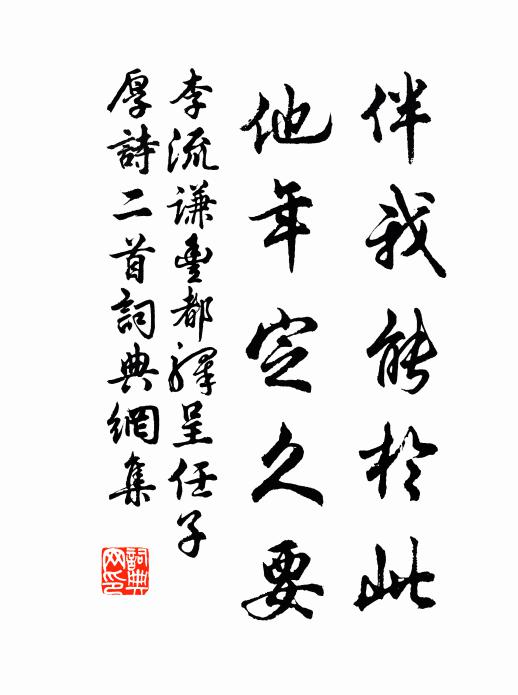 伴我能於此
他年定久要
李流谦豊都驛呈任子
厚詩二首詞典網集
詞典網印